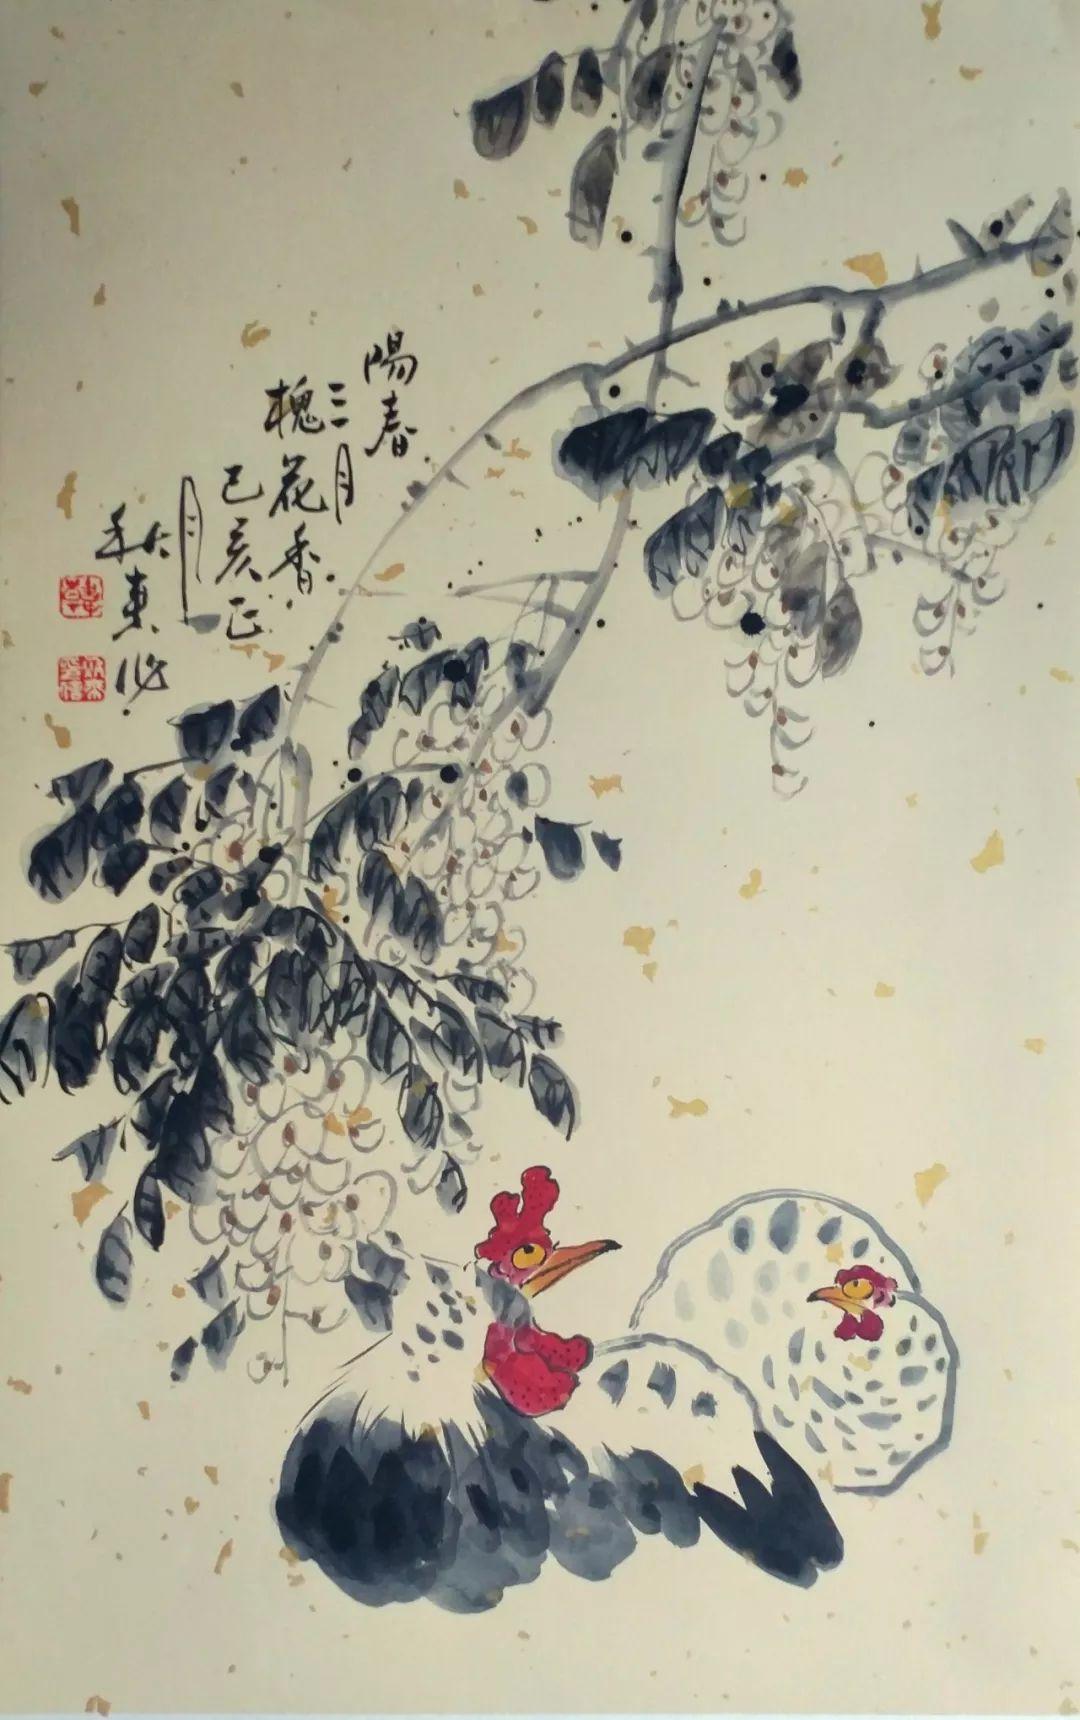 陽春
三月
槐花香
己亥正
月
秋東作